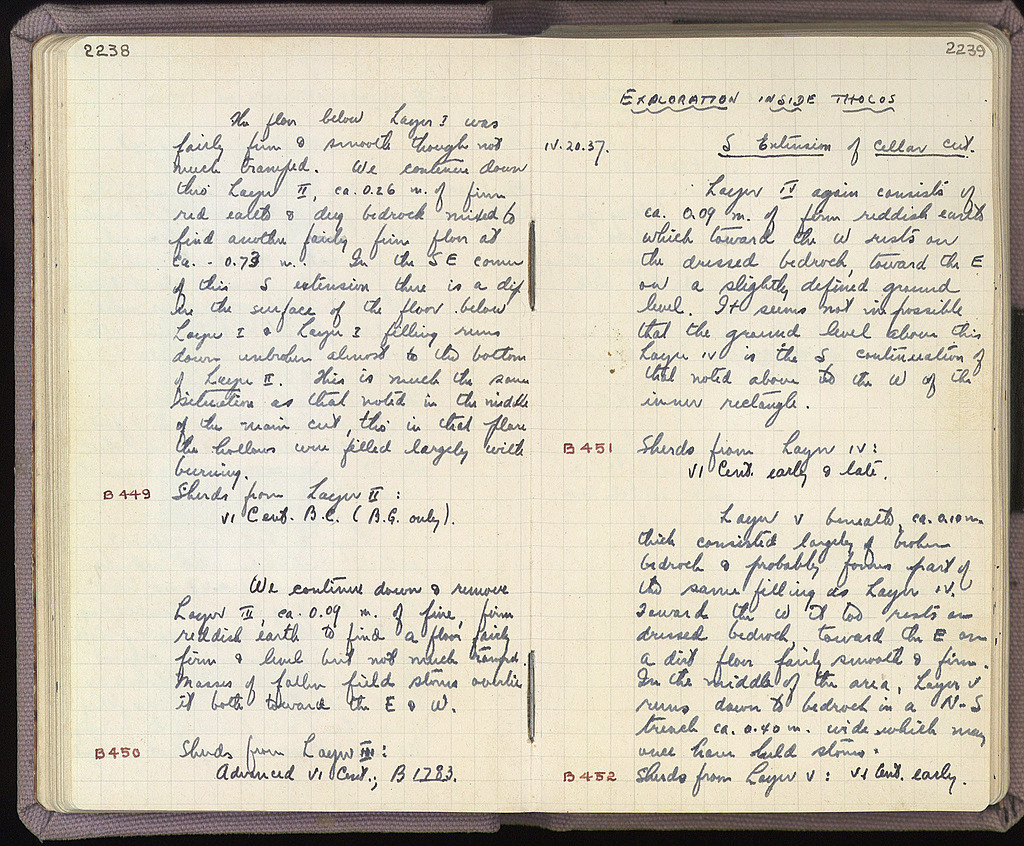 2238
The floor below Layer I was
fairly firm & smooth though not
much tramped. We continue down
thro Layer II, ca. 0.26 m. of firm
red earth & dug bedrock mixed to
find another fairly firm floor at
ca. - 0.73 m. In the SE corner
of this S extension there is a dip
in the surface of the floor below
Layer I & Layer I filling runs
down unbroken almost to the bottom
of Layer II. This is much the same
situation as that noted in the middle
of the main cut, tho' in that place
the hollows were filled largely with
burning.
B 449 Sherds from Layer II :
VI Cent. B.C. (B.G. only).
We continue down & remove
Layer III, ca. 0.09 m. of fine, firm
reddish earth to find a floor fairly
firm & level but not much tramped.
Masses of fallen field stones overlie
it both toward the E & W.
B 450 Sherds from Layer III :
Advanced VI Cent.; B 1783.
2239
EXPLORATION INSIDE THOLOS
IV.20.37. S Extension of Cellar Cut.
Layer IV again consists of
ca. 0.09 m. of firm reddish earth
which toward the W rests on
the dressed bedrock, toward the E
on a slightly defined ground
level. It seems not impossible
that the ground level above this
Layer IV is the S continuation of
that noted above to the W of the
inner rectangle.
B 451 Sherds from Layer IV :
VI Cent. early & late.
Layer V beneath, ca. 0.10 m.
thick consisted largely of broken
bedrock & probably forms part of
the same filling as Layer IV.
Toward the W it too rests on
dressed bedrock, toward the E on
a dirt floor fairly smooth & firm.
In the middle of the area, Layer V
runs down to bedrock in a N-S
trench ca. 0.40 m. wide which may
once have held stones.
B 452 Sherds from Layer V : VI Cent. early.